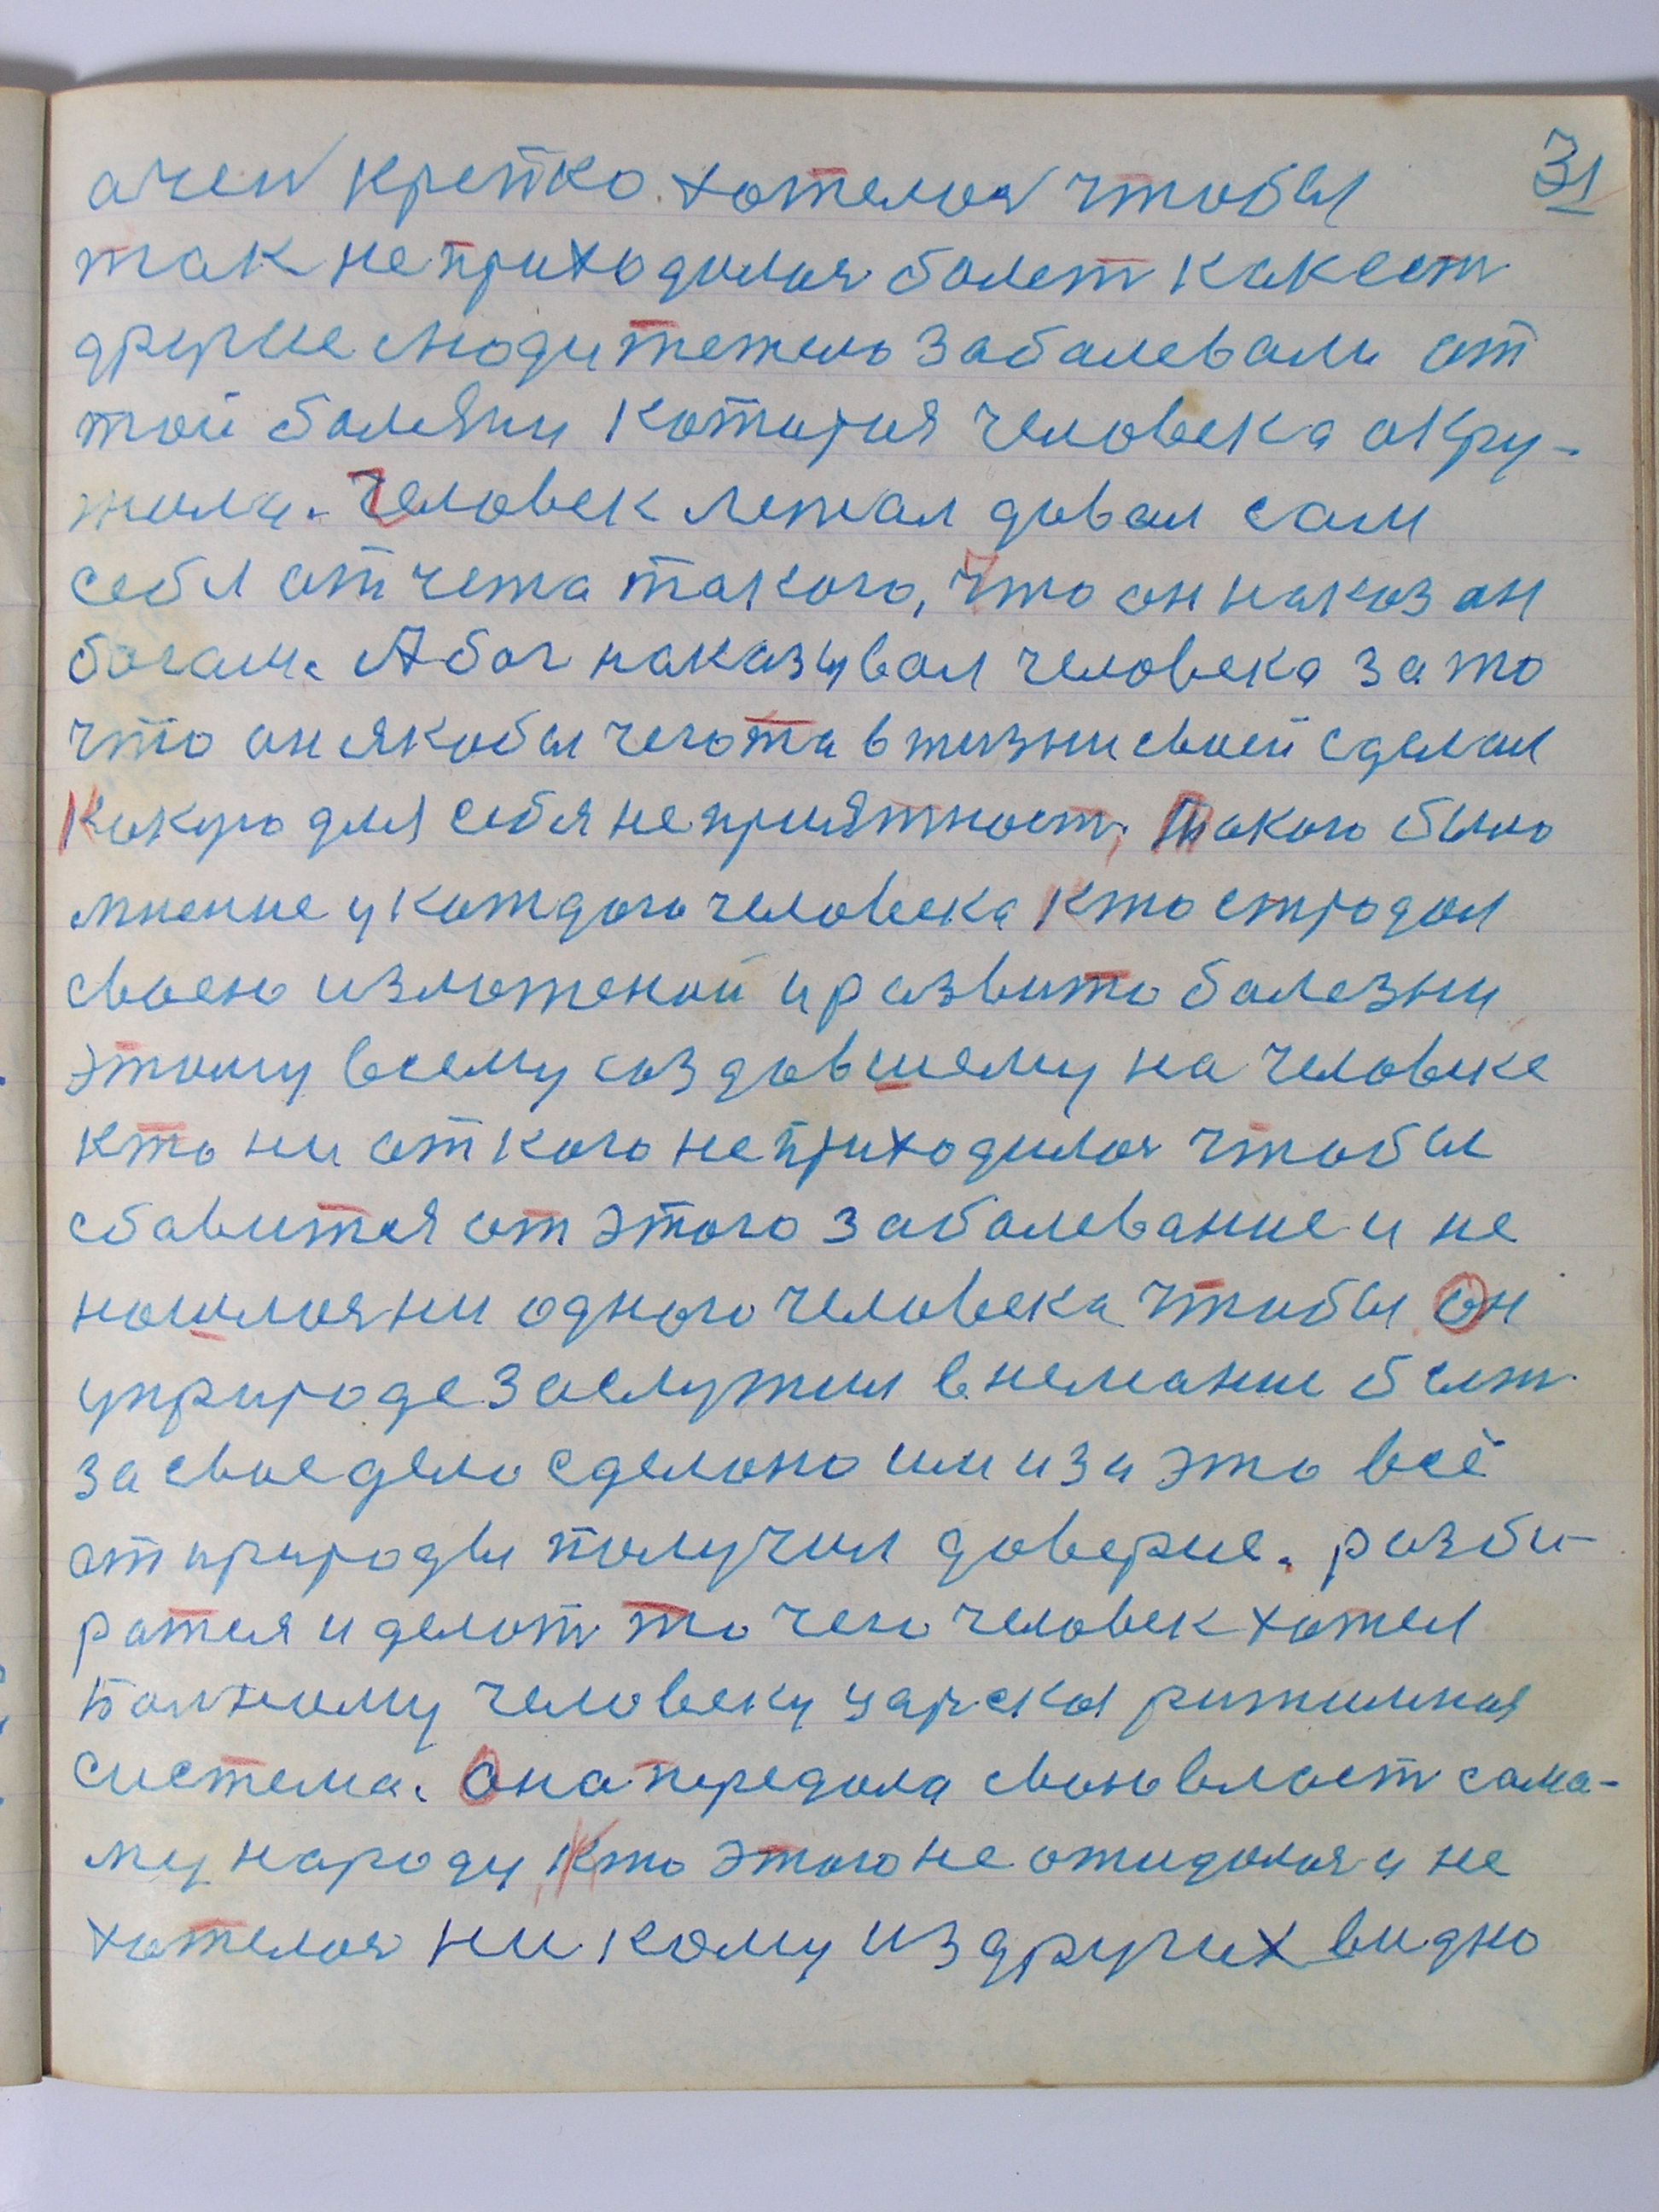 31
ачен крепко хотелоя чтобы
так неприходилоя болет какест
другие люди тежело заболевали от
той болезни котория человека окру-
жила. Человек лежал давал сам
себя отчета такого, Что он наказан
богам. А бог наказывал человека за то
что он якобы чегота в жизни своей сделал
Какую для себя неприятност, Такого было
мнение у каждого человека кто страдал
своею изложеной и развито болезни
этому всему создавшему на человеке
кто ни от кого неприходилоя чтобы
сбавится от этого заболевание и не
нашлоя ни одного человека чтобы он
уприроде заслужил внемание быт
за свое дело сделано им иза это всё
от природы получил доверие. разби-
ратся и делат то чего человек хотел
Болному человеку царска рижимная
система. Она передала свою власт сама-
му народу, Кто этого не ожидалоя и не
хотелоя ни кому из других видно